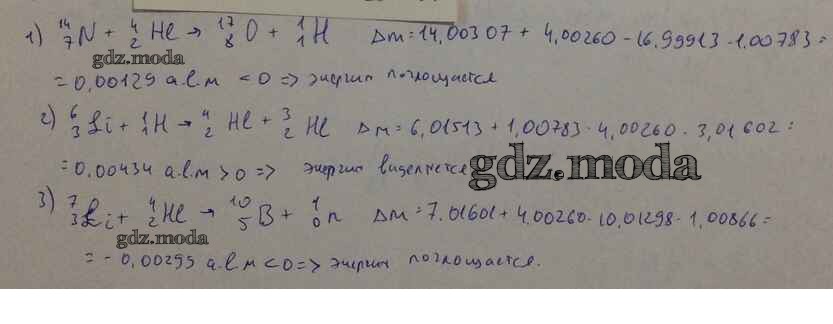 1) ¹⁴₇N + ⁴₂He → ¹⁷₈O + ¹₁H Δm = 14,00307 + 4,00260 - 16,99913 - 1,00783 =
gdz.moda
= 0,00129 а.е.м < 0 => энергия поглощается
2) ⁶₃Li + ¹₁H → ⁴₂He + ³₂He Δm = 6,01513 + 1,00783 - 4,00260 - 3,01602 =
= 0,00434 а.е.м > 0 => энергия выделяется
gdz.moda
3) ⁷₃Li + ⁴₂He → ¹⁰₅B + ¹₀n Δm = 7,01601 + 4,00260 - 10,01298 - 1,00866 =
gdz.moda
= - 0,00295 а.е.м < 0 => энергия поглощается.